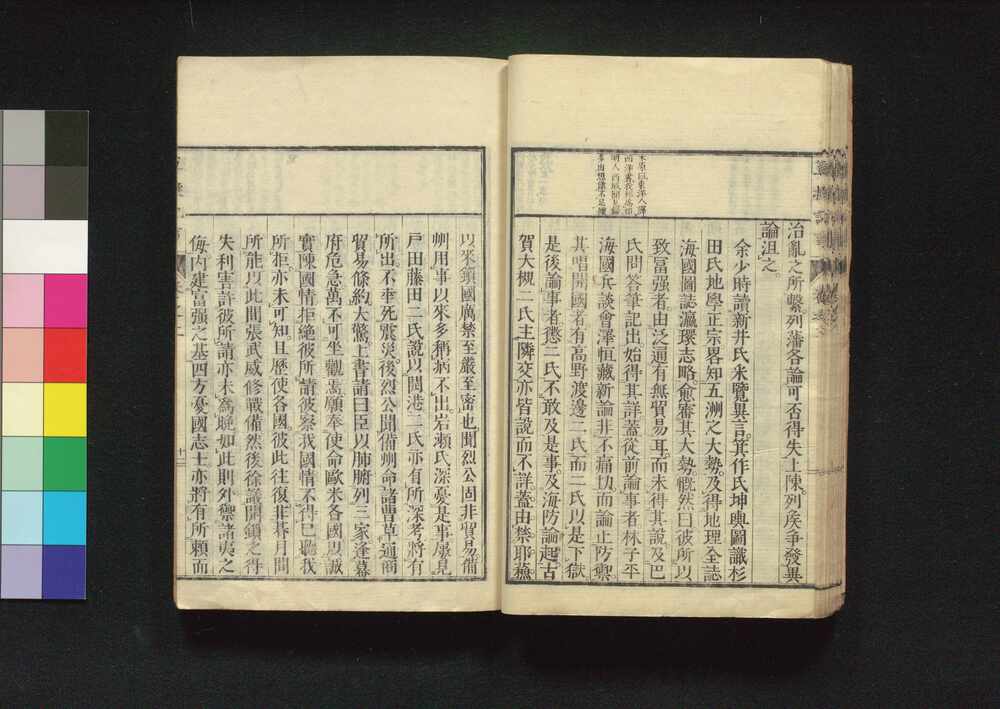 治亂之所繫列藩各論可否得失上陳列矦爭發異
論沮之
余少時讀新井氏釆覽異言箕作氏坤輿圖識杉
田氏地學正宗畧知五洲之大勢及得地理全誌
海國圖誌瀛環志略愈審其大勢慨然曰彼所以
致富强者由泛通有無貿易耳而未得其說及巴
氏問答筆記出始得其詳蓋從前論事者林子平
海國兵談會澤恒藏新論非不痛切而論止防禦
其唱開國者有高野渡邊二氏而二氏以是下獄
是後論事者懲二氏不敢及是事及海防論起古
賀大槻二氏主隣交亦皆說而不詳蓋由禁耶蘇
以來鎖國厲禁至嚴至密也聞烈公固非貿易備
州用事以來多稱病不出岩瀨氏深憂是事屢見
戶田藤田二氏說以開港二氏亦有所深考將有
所出不幸死震災後烈公聞備州命諸曹草通商
貿易條約大驚上書請曰臣以肺腑列三家逢幕
府危急萬不可坐觀焉願奉使命歐米各國以誠
實陳國情拒絕彼所請彼察我國情不得已聽我
所拒亦未可知且歷使各國彼此往復非朞月間
所能以此間張武威修戰備然後徐議開鎖之得
失利害許彼所請亦未爲晚如此則外禦諸夷之
侮內建富强之基四方憂國志士亦將有所賴而